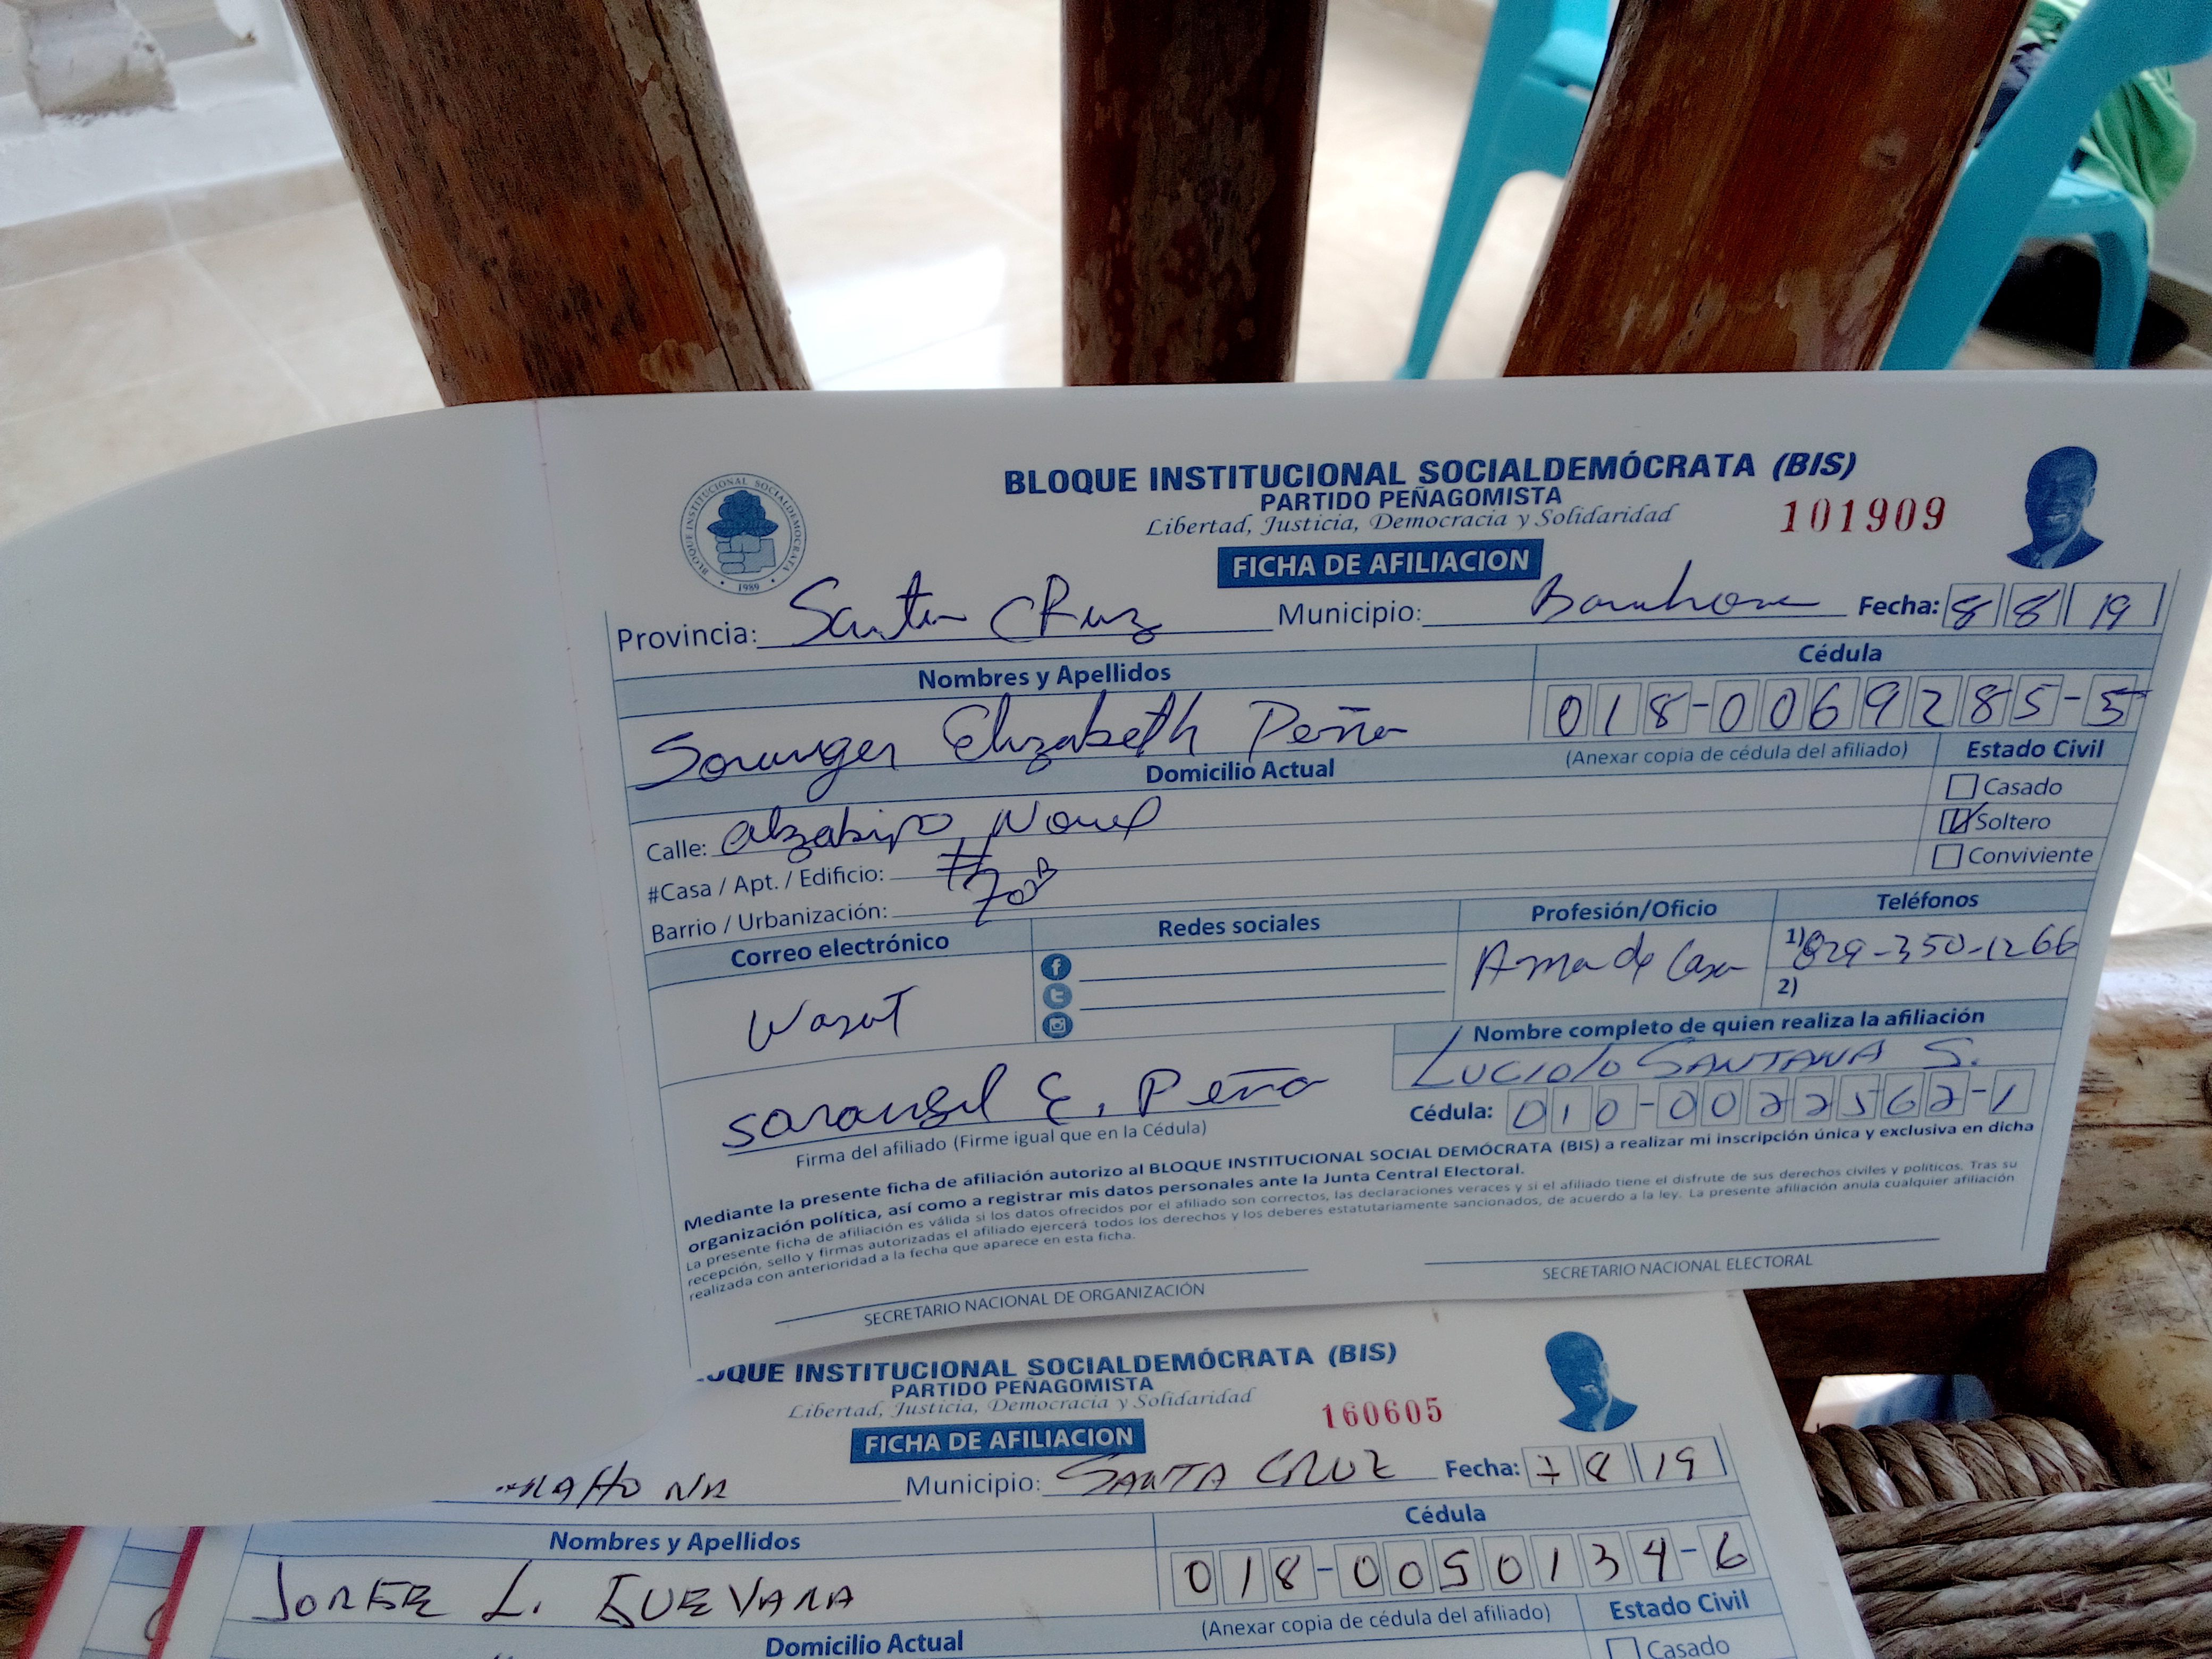 BLOQUE INSTITUCIONAL SOCIALDEMÓCRATA (BIS)
PARTIDO PEÑAGOMISTA
Libertad, Justicia, Democracia y Solidaridad
101909
BLOQUE INSTITUCIONAL SOCIALDEMOCRATA
1989
FICHA DE AFILIACION
Provincia: Santa CRuz Municipio: Fecha: 8 8 19
Nombres y Apellidos Cédula
Elizabeth Peña 018-0069285-5
Domicilio Actual (Anexar copia de cédula del afiliado) Estado Civil
Casado
Calle: Soltero
#Casa / Apt. / Edificio: # Conviviente
Barrio / Urbanización: 70B
Correo electrónico Redes sociales Profesión/Oficio Teléfonos
Ama de Casa 1) 829-350-1266
2)
Nombre completo de quien realiza la afiliación
SANTANA S.
E. Peña Cédula: 010-0022562-1
Firma del afiliado (Firme igual que en la Cédula)
Mediante la presente ficha de afiliación autorizo al BLOQUE INSTITUCIONAL SOCIAL DEMÓCRATA (BIS) a realizar mi inscripción única y exclusiva en dicha
organización política, así como a registrar mis datos personales ante la Junta Central Electoral.
La presente ficha de afiliación es válida si los datos ofrecidos por el afiliado son correctos, las declaraciones veraces y si el afiliado tiene el disfrute de sus derechos civiles y políticos. Tras su
recepción, sello y firmas autorizadas el afiliado ejercerá todos los derechos y los deberes estatutariamente sancionados, de acuerdo a la ley. La presente afiliación anula cualquier afiliación
realizada con anterioridad a la fecha que aparece en esta ficha.
SECRETARIO NACIONAL DE ORGANIZACIÓN SECRETARIO NACIONAL ELECTORAL
OQUE INSTITUCIONAL SOCIALDEMÓCRATA (BIS)
PARTIDO PEÑAGOMISTA
Libertad, Justicia, Democracia y Solidaridad
160605
FICHA DE AFILIACION
Municipio: SANTA CRUZ Fecha: 7 8 19
Nombres y Apellidos Cédula
L. GUEVARA 018-0050134-6
Domicilio Actual (Anexar copia de cédula del afiliado) Estado Civil
Casado